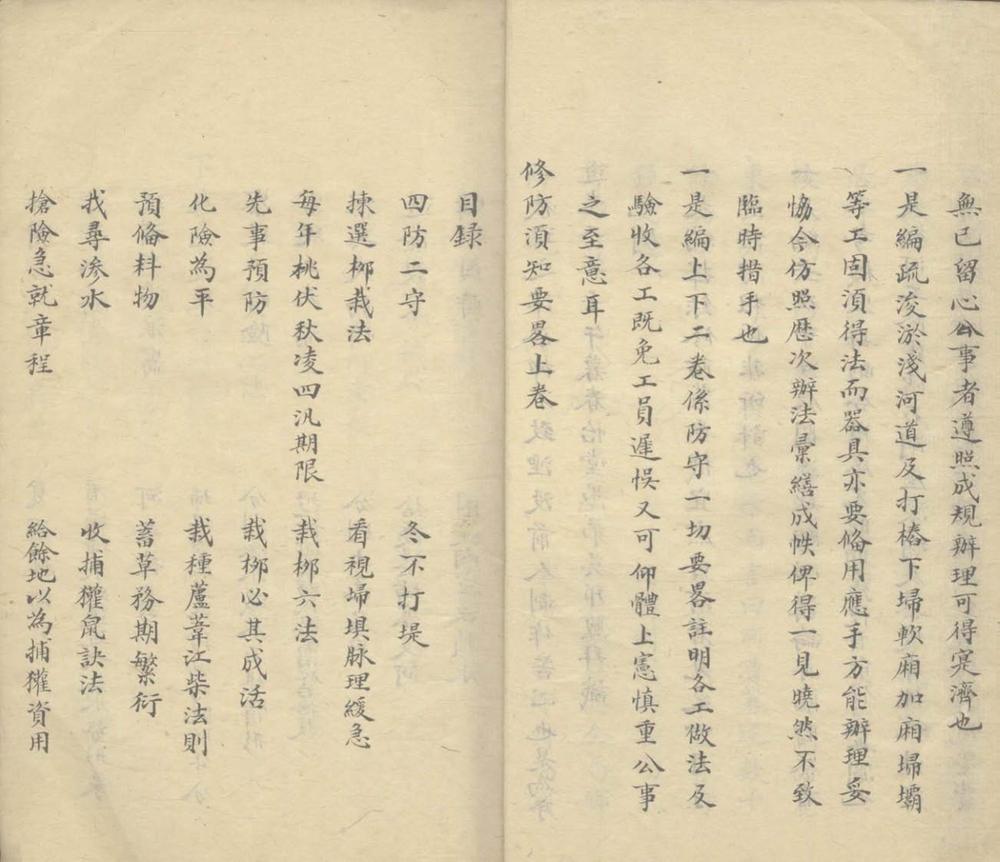 無已留心公事者遵照成規辦理可得寔濟也
一是編疏浚淤淺河道及打樁下埽軟廂加廂埽壩
等工固湏得法而器具亦要俻用應手方能辦理妥
恊合仿照歴次辦法彙繕成帙俾得一見曉然不致
臨時措手也
一是編上下二卷係防守一切要畧註明各工做法及
驗收各工既免工員遲悞又可仰體上憲慎重公事
之至意耳
修防湏知要畧上卷
目録
四防二守 冬不打堤
揀選栁栽法 看視埽埧脉理緩急
每年桃伏秋凌四汎期限 栽栁六法
先事預防 栽栁必其成活
化險為平 栽種蘆葦江柴法則
預俻料物 蓄草務期繁衍
我尋滲水 收捕獾鼠訣法
搶險急就章程 給餘地以為捕獾資用